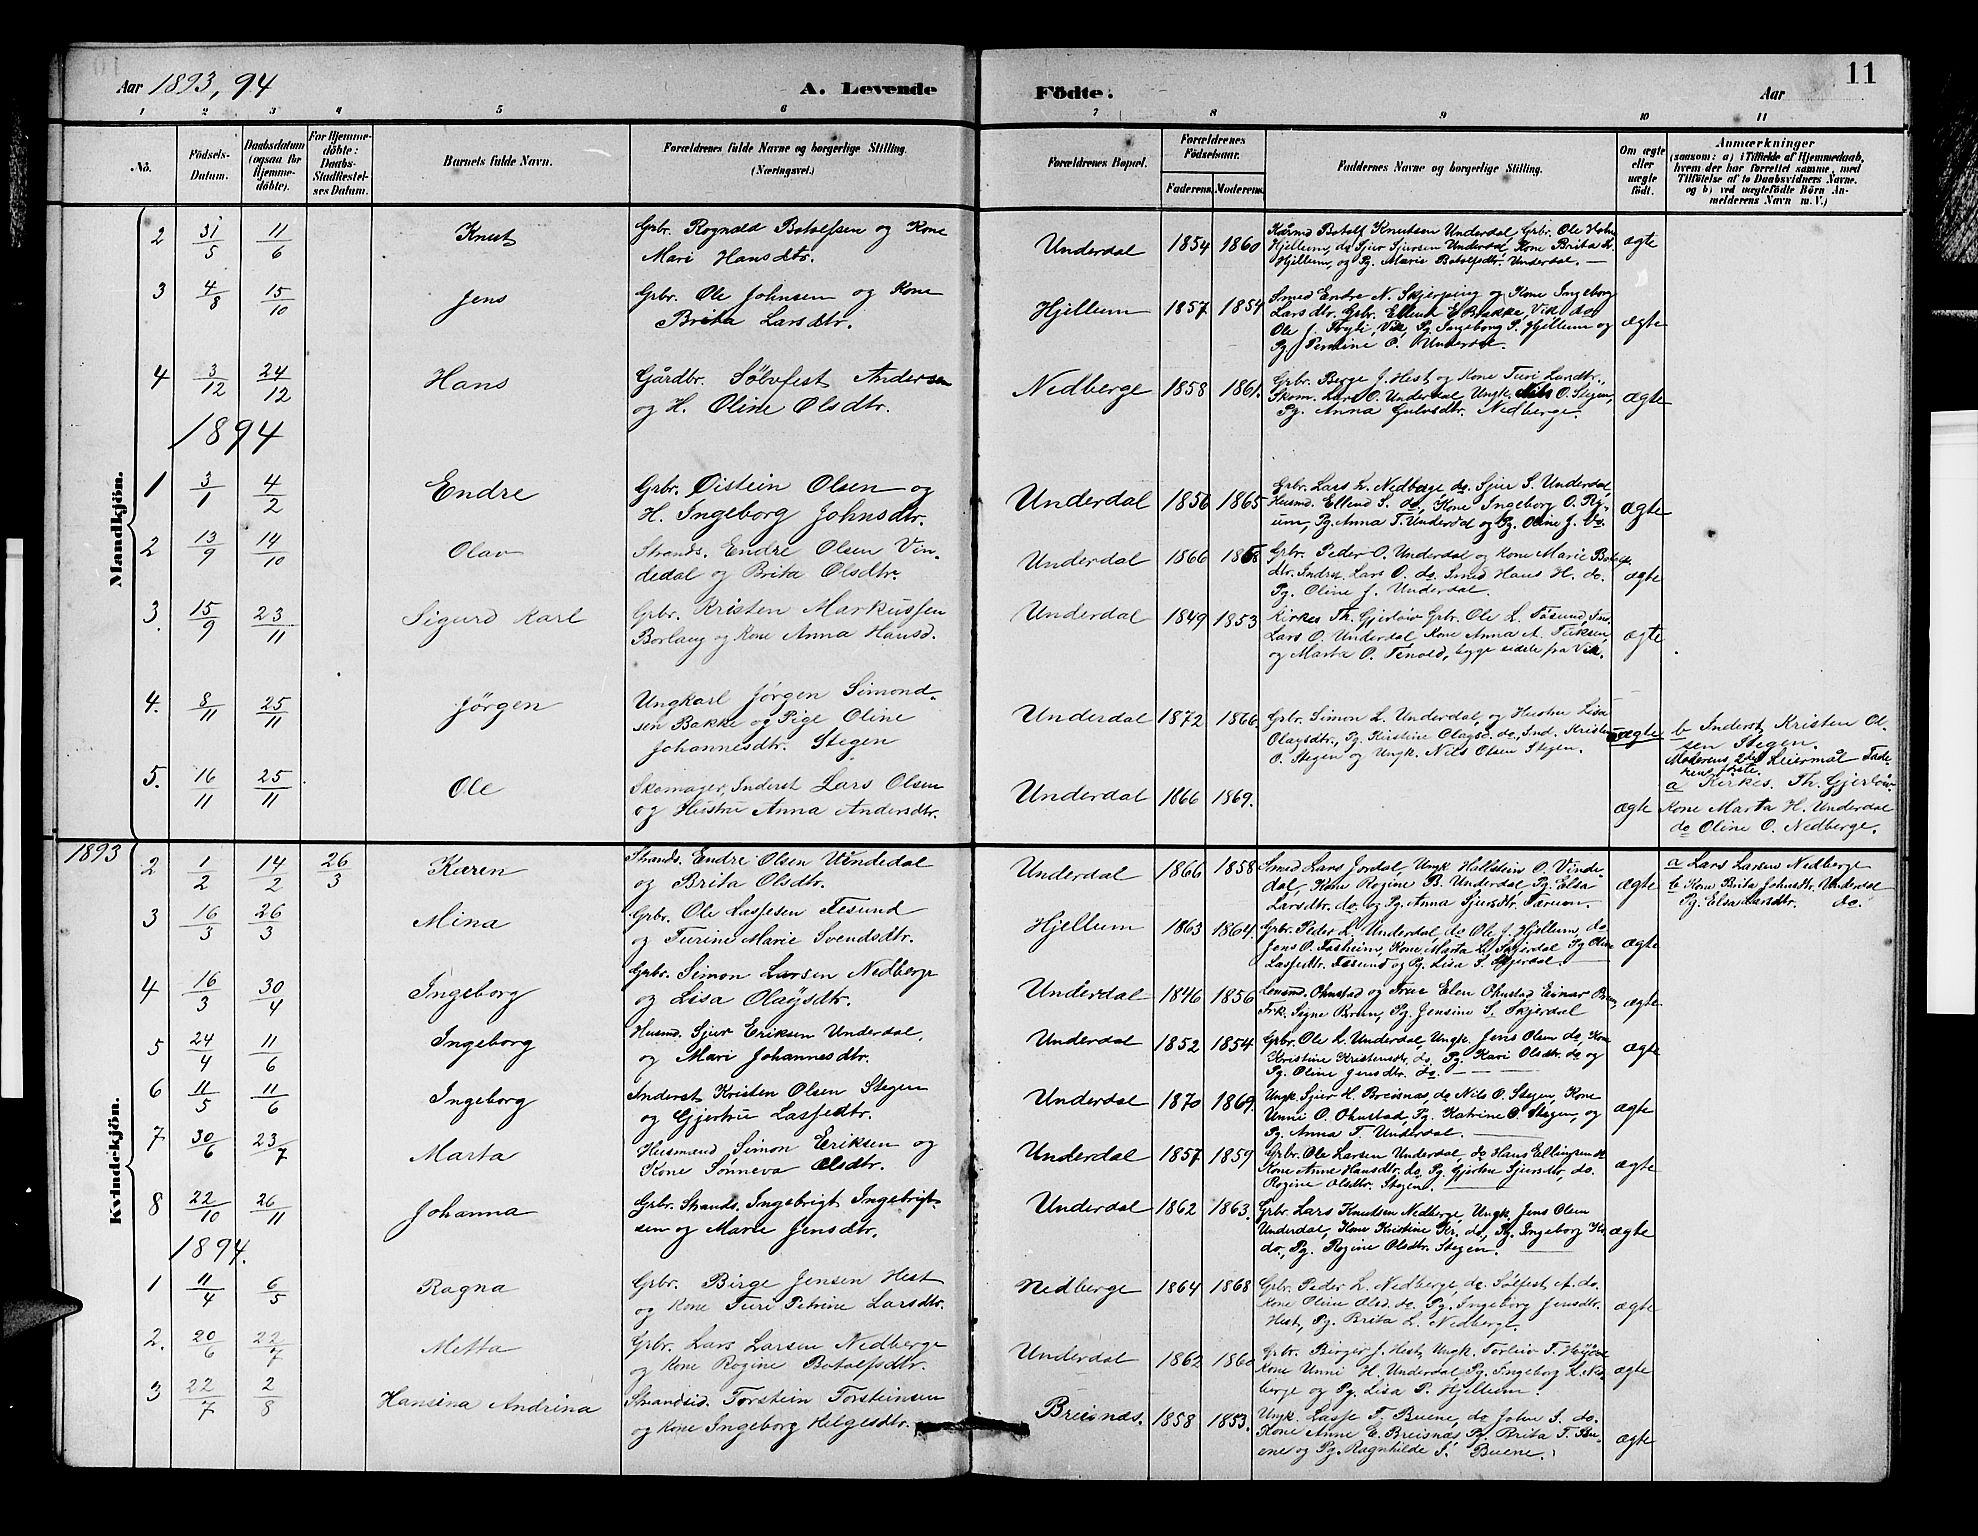 11
Aar 1893, 94
A. Levende Födte.
Aar
1 2 3 4 5 6 7 8 9 10 11
No.
Födsels-Datum.
Daabsdatum (ogsaa for Hjemme-döbte).
For Hjemme-döbte: Daabs-Stadfæstel-ses Datum.
Barnets fulde Navn.
Forældrenes fulde Navne og borgerlige Stilling.
(Næringsvei.)
Forældrenes Bopæl.
Forældrenes Födselsaar.
Faderens. Moderens.
Faddernes Navne og borgerlige Stilling.
Om ægte eller uægte födt.
Anmærkninger
(saasom: a) i Tilfælde af Hjemmedaab, hvem der har forrettet samme, med Tilföielse af to Daabsvidners Navne. og b) ved uægtefödte Börn An-melderens Navn m. V.)
Mandkjön.
2 31/5 11/6 Knut Grbr. Rognald Botolfsen og Kone
Mari Hansdtr.
Underdal 1854 1860
Botolf Knutsen Underdal, Grbr. Ole
Hjellum, do Sjur Sjursen Underdal, Kone Brita
Hjellum, og Pg. Marie Botolfsdtr. Underdal. — ægte
3 4/8 15/10 Jens Grbr. Ole Johnsen og Kone
Brita Larsdtr.
Hjellum 1857 1854
Smed Endre N. Skjerping og Kone Ingeborg
Larsdtr. Grbr. Ellend E. Bakke, Vik do
Ole J. Vik, Pg. Ingeborg P. Hjellum og
Pg. Pernine O. Underdal. ægte
4 3/12 24/12 Hans Gårdbr. Sölvfest Andersen
og H. Oline Olsdtr.
Nedberge 1858 1861.
Grbr. Berge J. Hest og Kone Turi Larsdtr.,
Skom. Lars O. Underdal, Ungk. Nils O. Stegen,
Pg. Anna Nedberge. ægte
1894
1 3/1 4/2 Endre Grbr. Øistein Olsen og
H. Ingeborg Johnsdtr.
Underdal 1856 1865
Grbr. Lars L. Nedberge do. Sjur S. Underdal,
Husmd. Ellend S. do, Kone Ingeborg O.
Pg. Anna T. Underdal og Pg. Oline J. do. ægte
2 13/9 14/10 Olav Strands. Endre Olsen Vin-
dedal og Brita Olsdtr.
Underdal 1866 1858
Grbr. Peder O. Underdal og Kone Marie Botolfs-
dtr. Inderst Lars O. do. Smed Hans H. do.
Pg. Oline J. Underdal. ægte
3. 15/9 23/11 Sigurd Karl Grbr. Kristen Markussen
Borlaug og Kone Anna Hansd.
Underdal 1849 1853
Kirkes. Th. Gjerløw Grbr. Ole L. Tösund,
Lars O. Underdal, Kone Anna A.
og Marta O. Tenold, begge sidste fra Vik. ægte
4. 8/11 25/11 Jörgen Ungkarl Jörgen Simond-
sen Bakke og Pige Oline
Johannesdtr. Stegen
Underdal 1872 1866
Grbr. Simon L. Underdal, og Hustru Lisa
Olaysdtr., Pg. Kristine Olaysd. do, Ind. Kristen
O. Stegen og Ungk. Nils Olsen Stegen. uægte
b Inderst Kristen Ol-
sen Stegen.
Moderens 2det Leiermål Fade-
rens förste.
5. 16/11 25/11 Ole Skomager, Inderst Lars Olsen
og Hustru Anna Andersdtr.
Underdal 1866 1869. ægte
a Kirkes. Th. Gjerløw
Kone Marta H. Underdal
do Oline O. Nedberge.
Kvindekjön.
1893
2 1/2 14/2 26/3 Karen Strands. Endre Olsen Vindedal
og Brita Olsdtr.
Underdal 1866 1858
Smed Lars Jordal, Ungk Hallstein O. Vinde-
dal, Kone Rogine B. Underdal Pg. Elsa
Larsdtr. do og Pg. Anna Sjursdtr. ægte
a Lars Larsen Nedberge
b Kone Brita Johnsdtr. Underdal
Pg. Elsa Larsdtr. do.
3 16/3 26/3 Mina Grbr. Ole Lassesen Tesund
og Turine Marie Svendsdtr.
Hjellum 1863 1864.
Grbr. Peder L. Underdal, do Ole J. Hjellum, do
Jens O. Fasheim, Kone Marta L. Skjerdal Pg Oline
Lassedtr. Tesund og Pg. Lisa S. Skjerdal. ægte
4 16/3 30/4 Ingeborg Grbr. Simon Larsen Nedberge
og Lisa Olaysdtr.
Underdal 1846 1856
Ohnstad og Frue Elen Ohnstad Einar
Frk. Signe Brun, Pg. Jensine S. Skjerdal ægte
5 24/4 11/6 Ingeborg Husmd. Sjur Eriksen Underdal,
og Mari Johannesdtr.
Underdal 1852 1854
Grbr. Ole L. Underdal, Ungk. Jens Olsen do, Kone
Kristine Kristensdtr. do, Pg. Kari Olsdtr. do og
Pg. Oline Jensdtr. do. ægte
6 11/5 11/6 Ingeborg Inderst Kristen Olsen Stegen
og Gjertrue Lassedtr.
Underdal 1870 1869.
Ungk. Sjur H. Breisnæs, do Nils O. Stegen, Kone
Unni O. Ohnstad, Pg. Katrine O. Stegen, og
Pg. Anna T. Underdal. ægte
7 30/6 23/7 Marta Husmand Simon Eriksen og
Kone Sönneva Olsdtr.
Underdal 1857 1859
Grbr. Ole Larsen Underdal, do Hans Ellingsen do
Kone Anne Hansdtr. do, Pg. Gjerten Sjursdtr, do.
Rogine Olsdtr. Stegen. ægte
8 22/10 26/11 Johanna Grbr. Strands. Ingebrigt Ingebrigt-
sen og Marie Jensdtr.
Underdal 1862 1863.
Grbr. Lars Knutsen Nedberge, Ungk. Jens Olsen
Underdal, Kone Kristine Kr. do, Pg. Ingeborg
do, Pg. Rogine Olsdtr. Stegen. ægte
1894.
1 11/4 6/5 Ragna Grbr. Birge Jensen Hest
og Kone Turi Petrine Larsdtr.
Nedberge 1864 1868
Grbr. Peder L. Nedberge, do. Sölfest A. do.
Kone Oline Olsd. do, Pg. Ingeborg Jensdtr.
Hest, Pg. Brita L. Nedberge. ægte
2. 20/6 22/7 Metta Grbr. Lars Larsen Nedberge
og Kone Rogine Botolfsdtr.
Underdal 1862 1860
Grbr. Birger J. Hest, Ungk. Torleiv T.
Kone Unni H. Underdal Pg. Ingeborg L. Ned-
berge og Pg. Lisa P. Hjellum. ægte
3 22/7 2/8 Hansina Andrina Strandsid. Torstein Torsteinsen
og Kone Ingeborg Helgesdtr.
Breisnæs. 1858 1853.
Ungk. Lasse T. Buene, do John S. do.
Kone Anne E. Breisnæs Pg. Brita T. Bu-
ene og Pg. Ragnhilde S. Buene. ægte